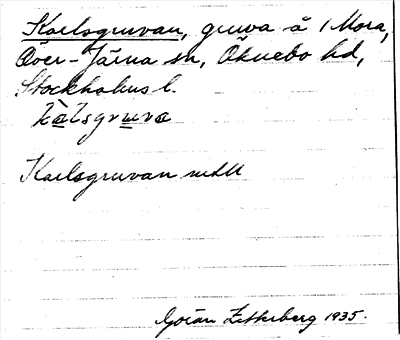 Karlsgruvan, gruva å 1 Mora,
Över-Järna sn, Öknebo hd,
Stockholms l.
kàlsgruva
Karlsgruvan
Göran Zetterberg 1935.